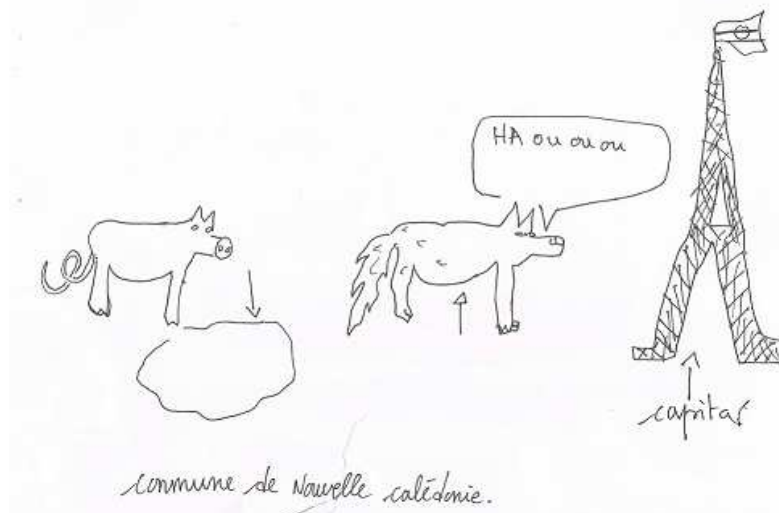 HA ou ou ou
capital
commune de Nouvelle calédonie.